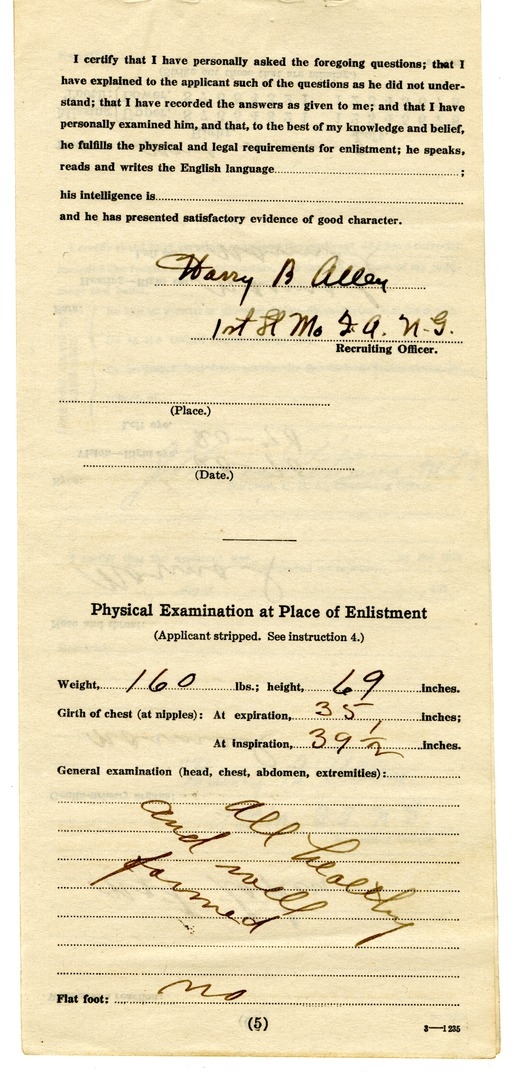 I certify that I have personally asked the foregoing questions; that I
have explained to the applicant such of the questions as he did not under-
stand; that I have recorded the answers as given to me; and that I have
personally examined him, and that, to the best of my knowledge and belief,
he fulfills the physical and legal requirements for enlistment; he speaks,
reads and writes the English language;
his intelligence is
and he has presented satisfactory evidence of good character.
Harry B Allen
1st Lt Mo F.A. N.G.
Recruiting Officer.
(Place.)
(Date.)
Physical Examination at Place of Enlistment
(Applicant stripped. See instruction 4.)
Weight, 160 lbs.; height, 69 inches.
Girth of chest (at nipples): At expiration, 35, inches;
At inspiration, 39 1/2 inches.
General examination (head, chest, abdomen, extremities):
all healthy
and well
formed
Flat foot: no
(5)
3—1235